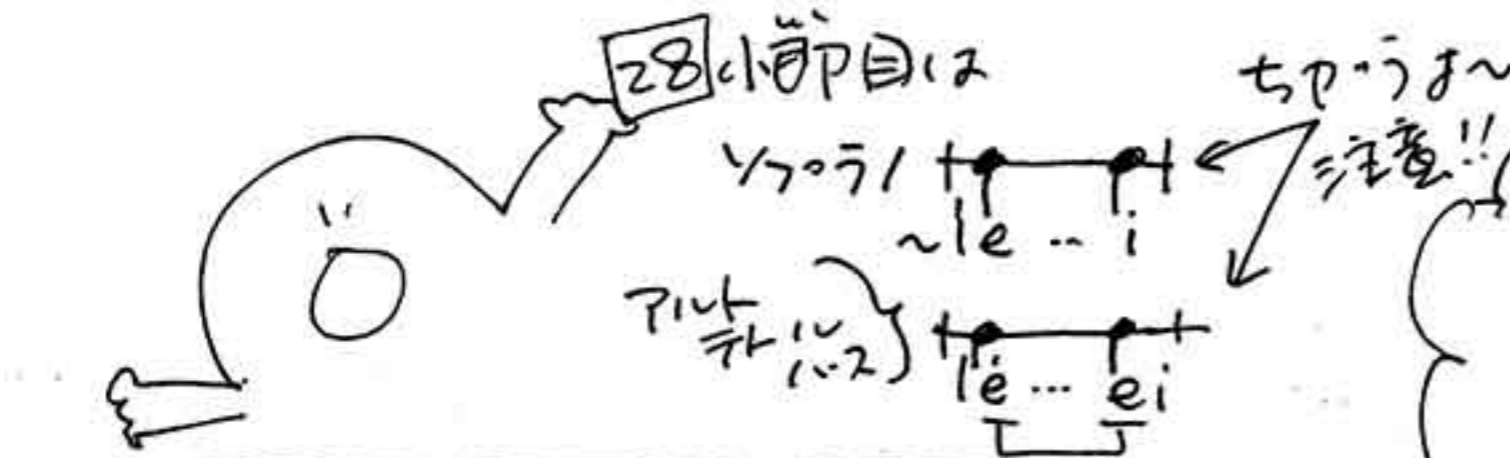 28小節目は
ちがうよ〜
注意!!
ソプラノ
〜le … i
アルト
テノール
バス
le … ei